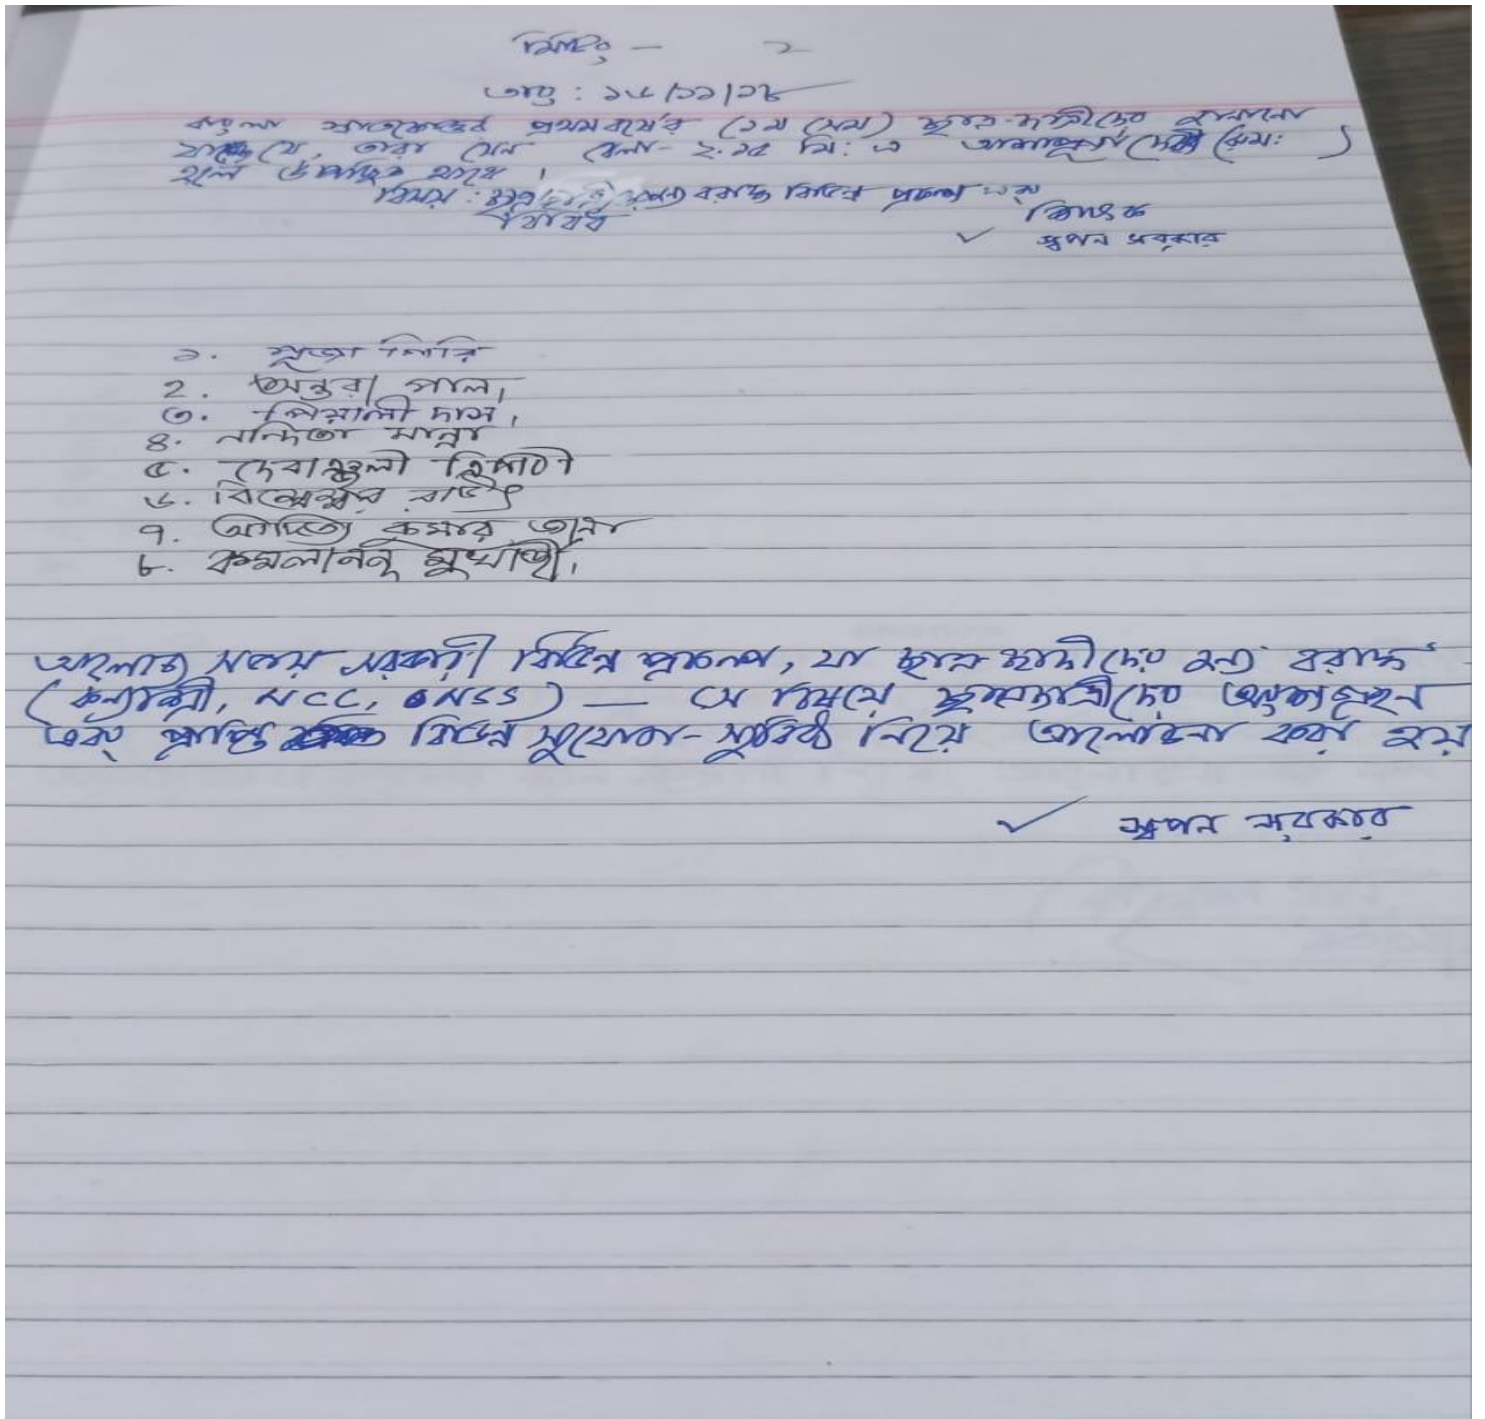 মিটিং - ২
তাং : ১৮/১১/১৮
বাংলা স্নাতকোত্তর প্রথম বর্ষের (১ম সেম) ছাত্র-ছাত্রীদের জানানো
যাচ্ছে যে, তারা যেন বেলা- ২.১৫ মি: এ আশাপূর্ণা দেবী (রুম: )
হলে উপস্থিত থাকে ।
বিষয় : জন্য বরাদ্দ বিভিন্ন প্রকল্প এবং
বিবিধ
বিনীত
✓ স্বপন সরকার
১. পূজা গিরি
2. অন্তরা পাল,
৩. পিয়ালী দাস,
৪. নন্দিতা মান্না
৫. দেবাঞ্জলী ত্রিপাঠী
৬. বিশ্বেশ্বর
৭. আদিত্য কুমার জানা
৮. কমলানন্দ মুখার্জী,
আলোচ্য সভায় সরকারী বিভিন্ন প্রকল্প, যা ছাত্র ছাত্রীদের জন্য বরাদ্দ
(কন্যাশ্রী, NCC, NSS) — সে বিষয়ে ছাত্রছাত্রীদের অংশগ্রহন
এবং প্রাপ্তি বিভিন্ন সুযোগ-সুবিধা নিয়ে আলোচনা করা হয়
✓ স্বপন সরকার